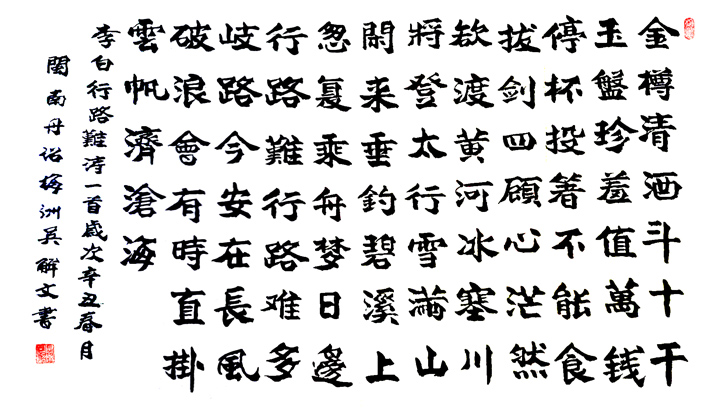 金樽清酒斗十千
玉盤珍羞值萬钱
停杯投著不能食
拔剑四顧心茫然
欲渡黄河冰塞川
將登太行雪滿山
閑来垂釣碧溪上
忽夏乘舟梦日邊
行路難行路难多
岐路今安在長風
破浪會有時直掛
雲帆濟滄海
李白行路難诗一首歲次辛丑春月
閩南丹诏梅洲吴解文書